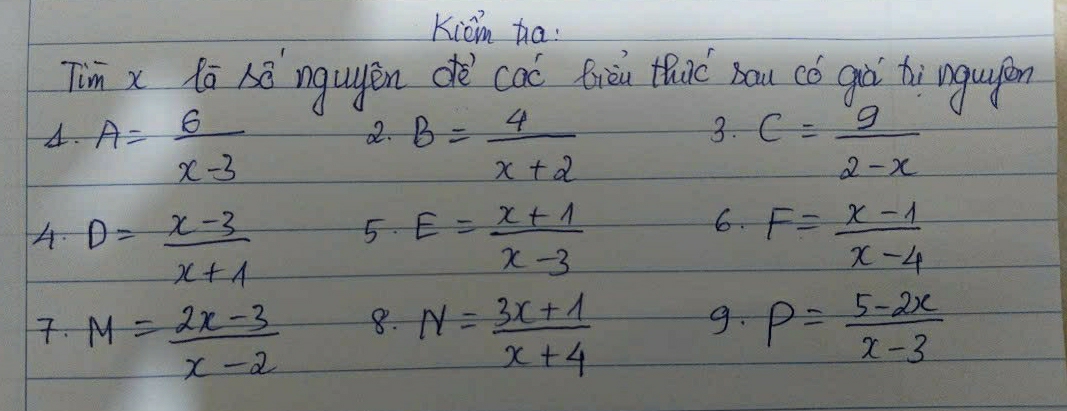 Kiểm tra:
Tìm x là số nguyên để các biểu thức sau có giá trị nguyên
1. A = 6/(x-3) 2. B = 4/(x+2) 3. C = 9/(2-x)
4. D = (x-3)/(x+1) 5. E = (x+1)/(x-3) 6. F = (x-1)/(x-4)
7. M = (2x-3)/(x-2) 8. N = (3x+1)/(x+4) 9. P = (5-2x)/(x-3)